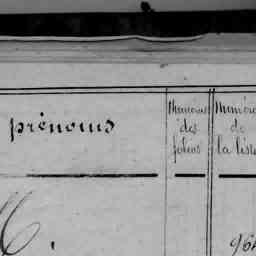 prénoms
Numéros
des
folios
Numéro
de
la liste
M.